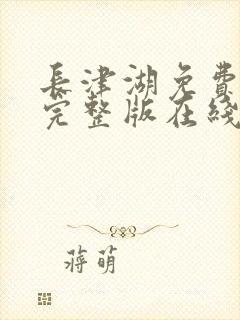 長津湖免費
完整版在綫
蔣萌